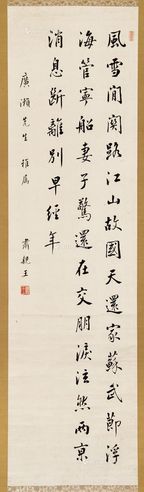 風雪間関路江山故國天還家蘇武節浮
海管寧船妻子驚還在交朋淚泫然兩京
消息斷離別早經年
廣瀨先生雅属
肅親王